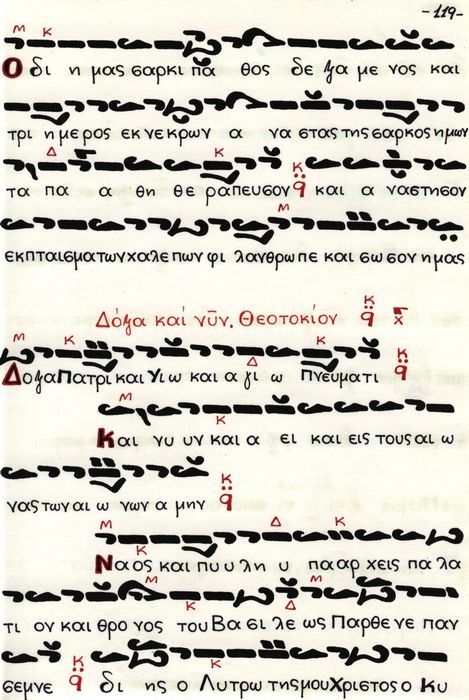 -119-
Ο δι η μας σαρκι πα θος δε ξα με νος και
τρι η με ρος εκ νε κρων α να στας της σαρκος ημων
τα πα α θη θε ραπευσον και α ναστησον
εκ πταισματων χαλε πων φι λανθρω πε και σω σον ημας
Δόξα καί νῦν. Θεοτοκίον
Δοξα Πατρι και Υι ω και α γι ω Πνευματι
Και νυ υν και α ει και εις τους αι ω
νας των αι ω νων α μην
Να ος και πυ υ λη υ πα αρ χεις πα λα
τι ον και θρο νος του Βα σι λε ως Παρθε νε παν
σεμνε δι ης ο Λυτρω της μου Χριστος ο Κυ